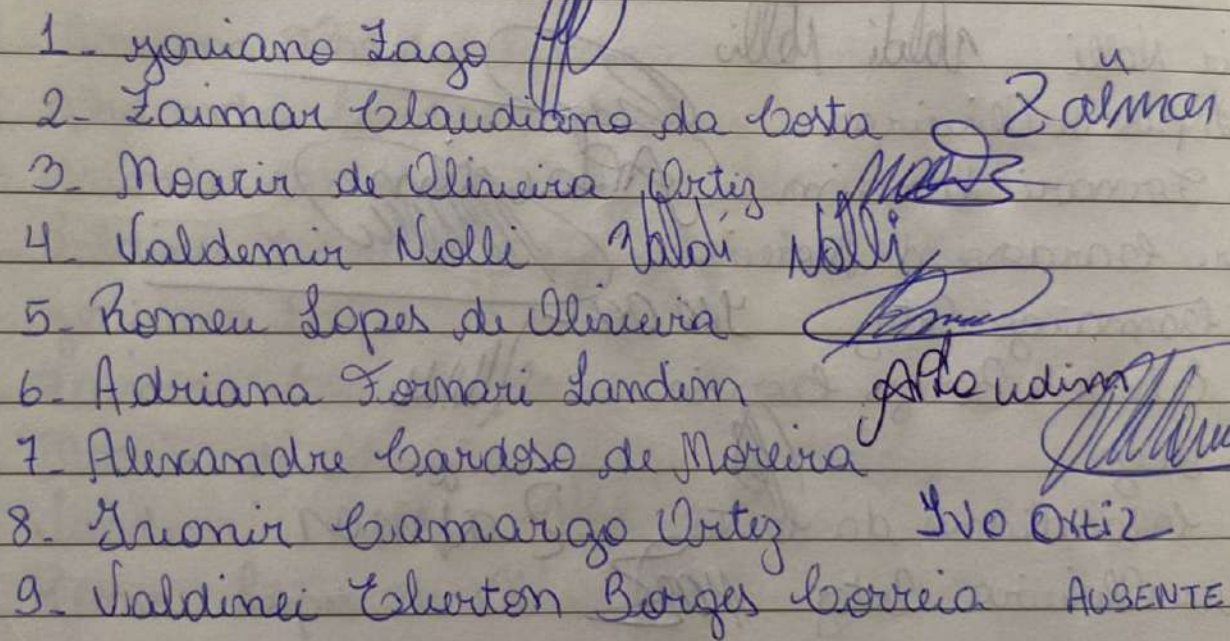 1- Joviano Zago
2- Zaimar Claudiano da Costa Zalmar
3- Moacir de Oliveira Ortiz
4- Valdemir Nolli Valdi Nolli
5- Romeu Lopes de Oliveira
6- Adriana Fornari Landim
7- Alexandre Cardoso de Moreira
8- Ivonir Camargo Ortiz Ivo Ortiz
9- Valdinei Borges Correia AUSENTE